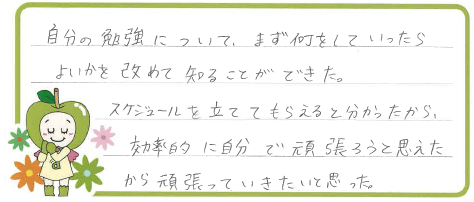 自分の勉強について、まず何をしていったら
よいかを改めて知ることができた。
スケジュールを立ててもらえると分かったから、
効率的に自分で頑張ろうと思えた
から頑張っていきたいと思った。